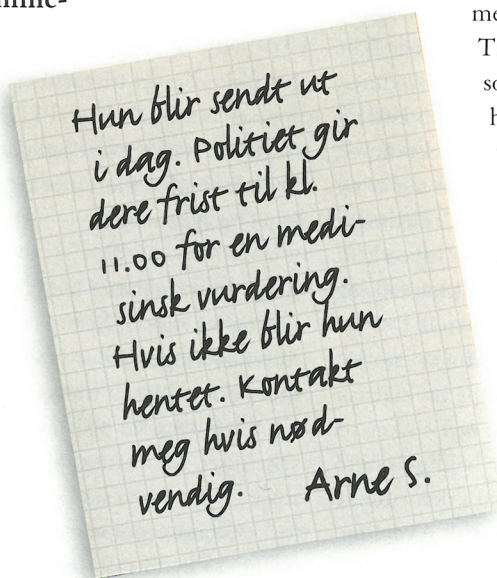 Hun blir sendt ut
i dag. Politiet gir
dere frist til kl.
11.00 for en medi-
sinsk vurdering.
Hvis ikke blir hun
hentet. Kontakt
meg hvis nød-
vendig. Arne S.